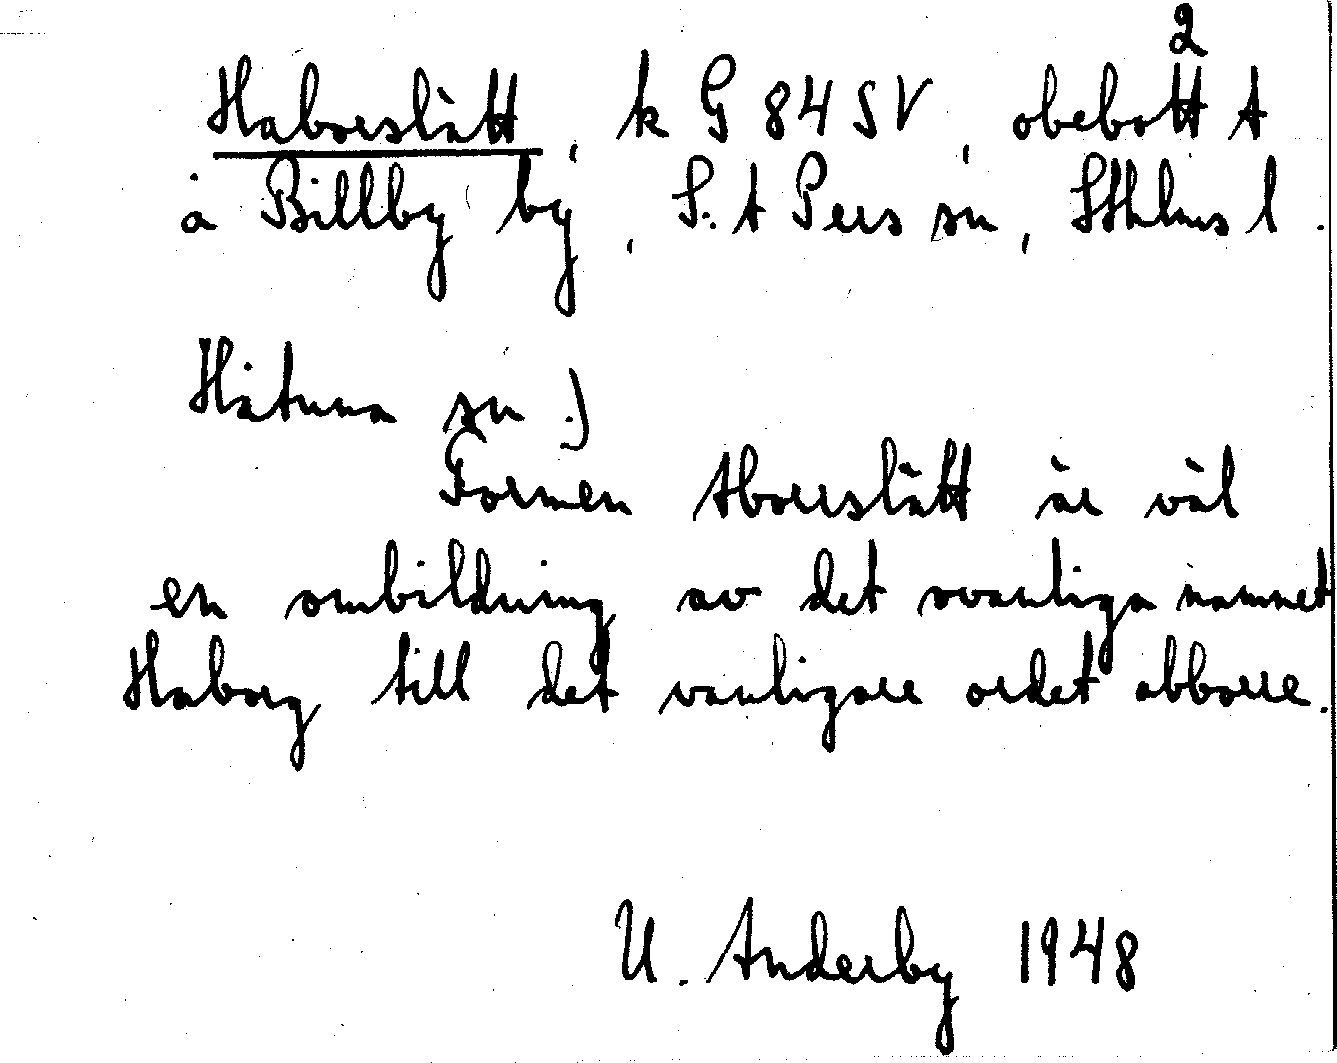 2
Haborslätt, k G 84 SV, obebott t
å Billby by, S:t Pers sn, Sthlms l.
Håtuna sn.)
Formen Aborrslätt är väl
en ombildning av det ovanliga namnet
Haborg till det vanligare ordet abborre.
U. Anderby 1948